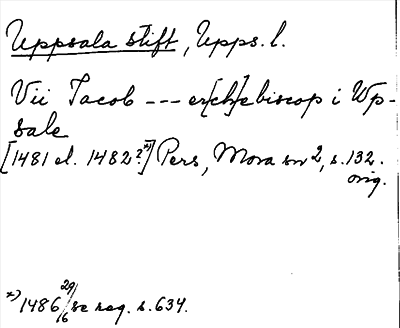 Uppsala stift, Upps. l.
Vii Jacob --- er[ch]ebiscop i Wp-
sale
[1481 el. 1482?x)] Pers, Mora sn 2, s. 132.
orig.
x) 1486 29/6 se reg. s. 634.